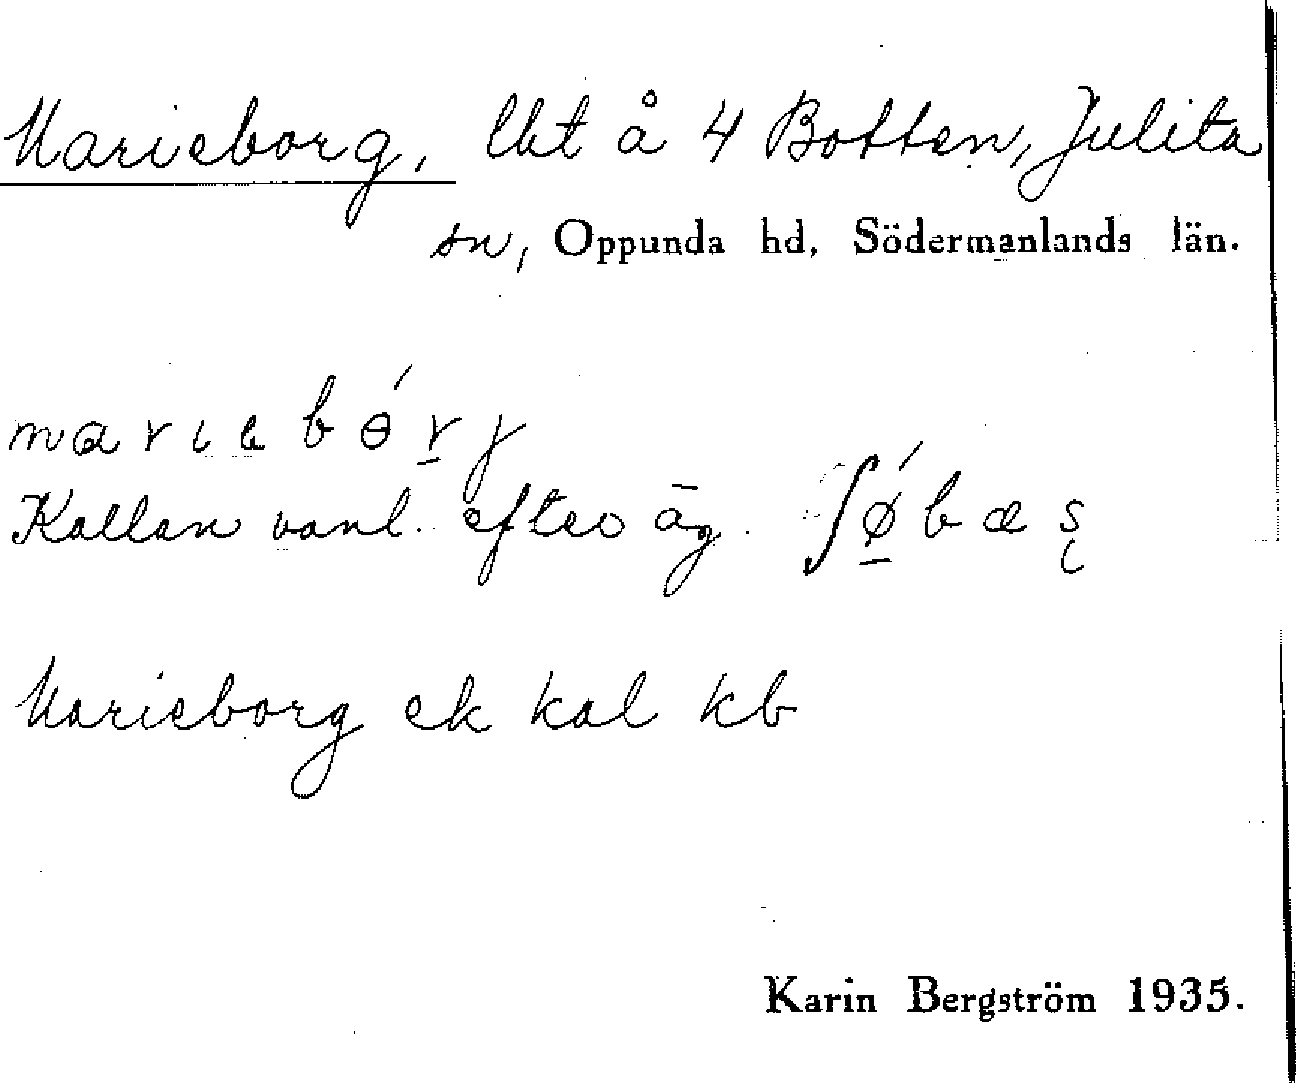 Marieborg, lht å 4 Botten, Julita
sn, Oppunda hd, Södermanlands län.
marıe bɵ́r̲j
Kallas vanl. efter äg. ʃǿ̲bæs̨
Marieborg ek kal kb
Karin Bergström 1935.